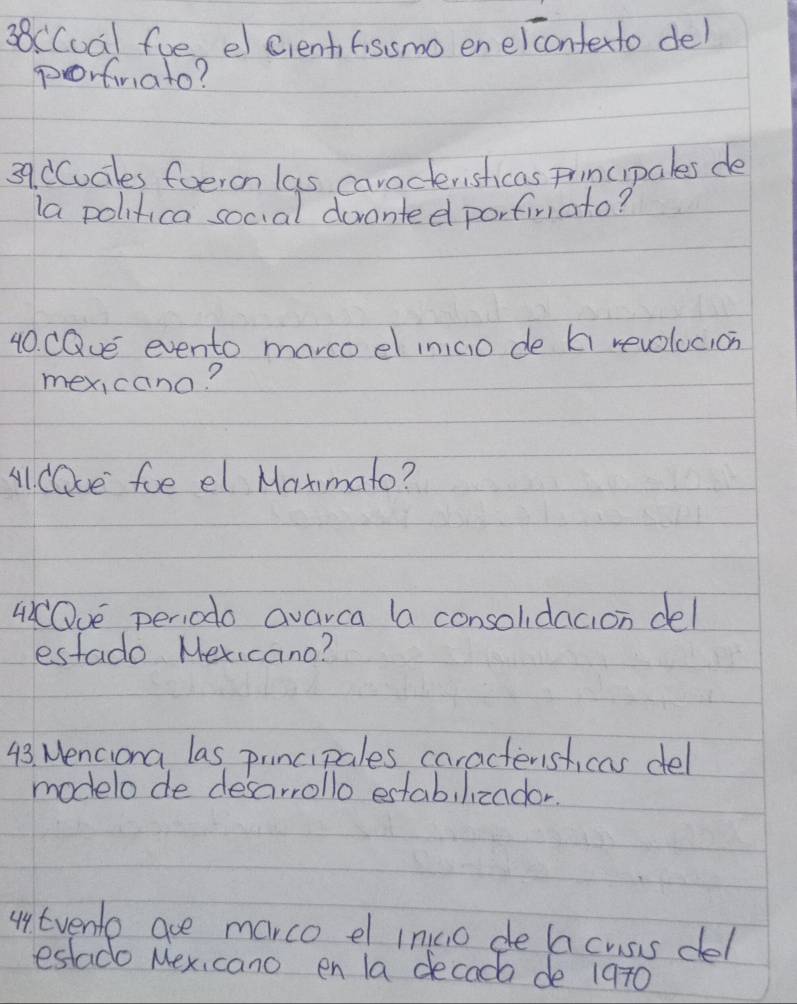 38.¿Cuál fue el cientifisismo en el contexto del
porfiriato?
39.¿Cuáles fueron las caracteristicas Principales de
la politica social durante el porfiriato?
40.¿Qué evento marco el inicio de la revolución
mexicana?
41.¿Qué fue el Maximato?
42.¿Qué periodo avarca la consolidación del
estado Mexicano?
43.Menciona las principales caracteristicas del
modelo de desarrollo estabilizador.
44.Evento que marco el inicio de la crisis del
estado Mexicano en la decada de 1970